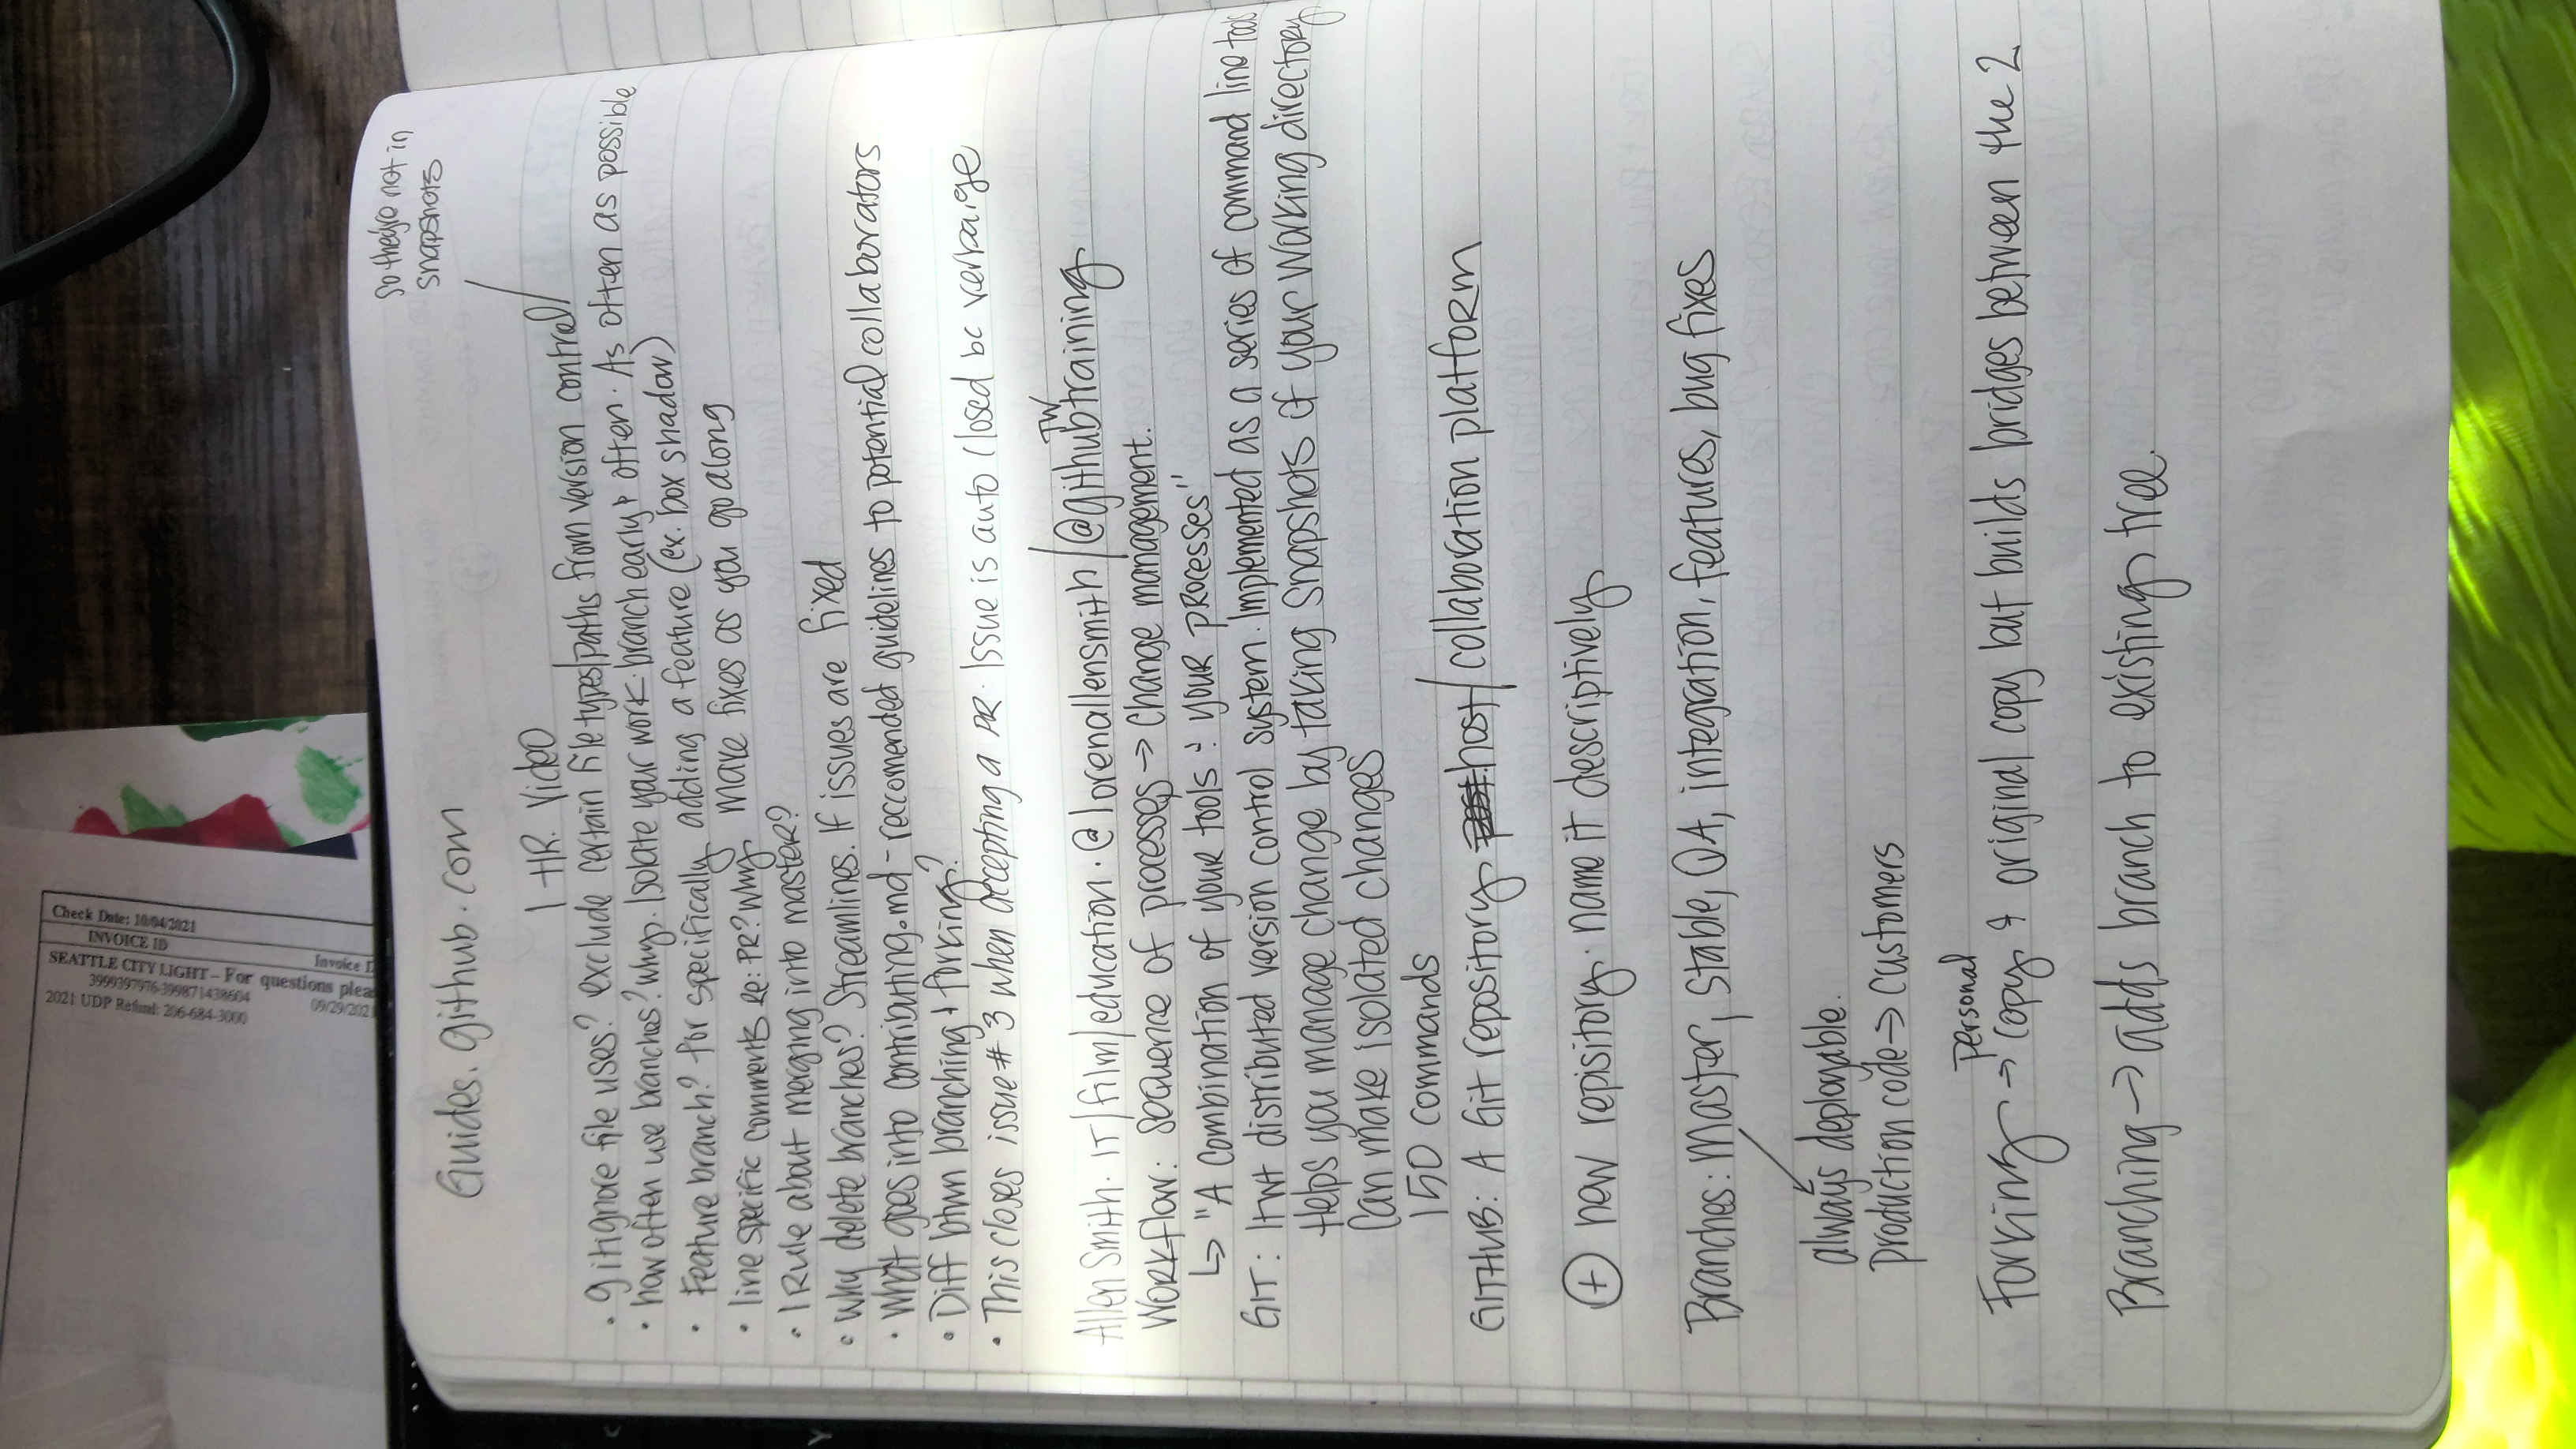 Check Date: 10/04/2021
INVOICE ID
Invoice
SEATTLE CITY LIGHT - For questions plea
09/29/202
2021 UDP Refund: 206-684-3000
So they're not in
snapshots
Guides.github.com
1 HR. Video
• gitignore file uses? exclude certain file types/paths from version control
• how often use branches? why. Isolate your work. branch early & often. As often as possible
• Feature branch? for specifically adding a feature (ex. box shadow)
• line specific comments Re: PR? Why make fixes as you go along
• 1 Rule about merging into master?
• Why delete branches? Streamlines. If issues are fixed
• What goes into contributing.md - reccomended guidelines to potential collaborators
• Diff btwn branching & forking?
• This closes issue # 3 when accepting a PR. Issue is auto closed bc verbaige
Allen Smith. IT/film/education. @lorenallensmith/@githubtraining
TW
Workflow: Sequence of processes → Change management.
↳ "A combination of your tools & your processes"
GIT: distributed version control system. Implemented as a series of command line tools
Helps you manage change by taking snapshots of your working directory
Can make isolated changes
150 commands
GITHUB: A Git repository host/collaboration platform
+ new repisitory. name it descriptively
Branches: Master, stable, QA, integration, features, bug fixes
always deployable.
Production code → customers
personal
Forking → copy & original copy but builds bridges between the 2
Branching → adds branch to existing tree.